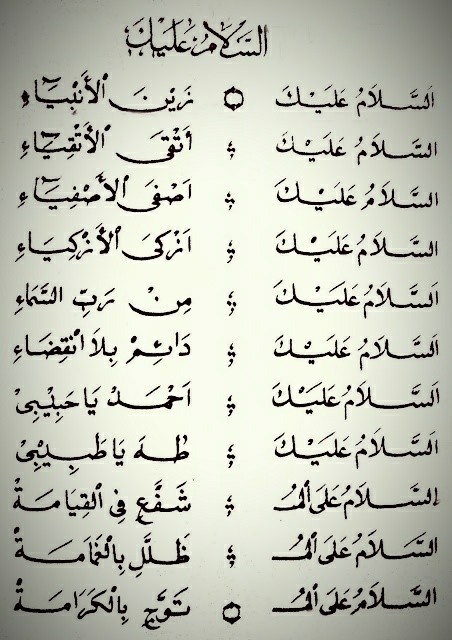 السَّلَامُ عَلَيْكَ
السَّلَامُ عَلَيْكَ زَيْنَ الْأَنْبِيَاءِ
السَّلَامُ عَلَيْكَ أَتْقَى الْأَتْقِيَاءِ
السَّلَامُ عَلَيْكَ اَصْفَى الْأَصْفِيَاءِ
السَّلَامُ عَلَيْكَ اَزْكَى الْأَزْكِيَاءِ
السَّلَامُ عَلَيْكَ مِنْ رَبِّ السَّمَاءِ
السَّلَامُ عَلَيْكَ دَائِمْ بِلَا انْقِضَاءِ
السَّلَامُ عَلَيْكَ اَحْمَدْ يَا حَبِيْبِىْ
السَّلَامُ عَلَيْكَ طٰهَ يَا طَبِيْبِىْ
السَّلَامُ عَلَى الْمُـ شَفَّعِ فِى الْقِيَامَةْ
السَّلَامُ عَلَى الْمُـ ظَلَّلِ بِالْغَمَامَةْ
السَّلَامُ عَلَى الْمُـ تَوَّجِ بِالْكَرَامَةْ